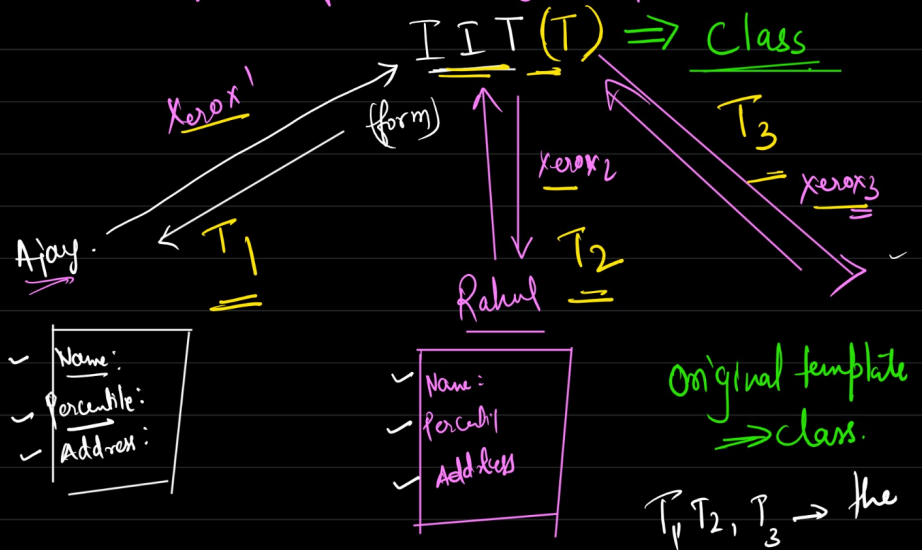 IIT (T) ⇒ Class
Xerox1
(form)
T3
Xerox2
Xerox3
Ajay.
T1
T2
Rahul
Name:
Percentile:
Address:
Name:
Percentil
Address
Original template
⇒ class.
T1, T2, T3 → the